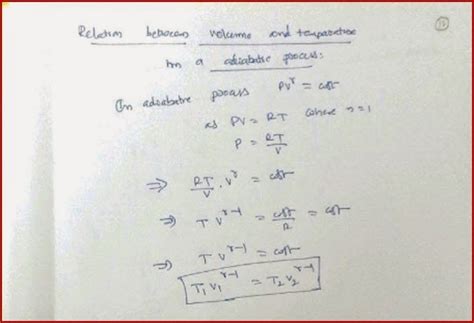 Relation between volume and temperature
in a adiabatic process:
In adiabatic process PVʳ = cost
as PV = RT where n=1
P = RT/V
⇒ RT/V · Vʳ = cost
⇒ T Vʳ⁻¹ = cost/R = cost
⇒ T Vʳ⁻¹ = cost
T₁ V₁ʳ⁻¹ = T₂ V₂ʳ⁻¹